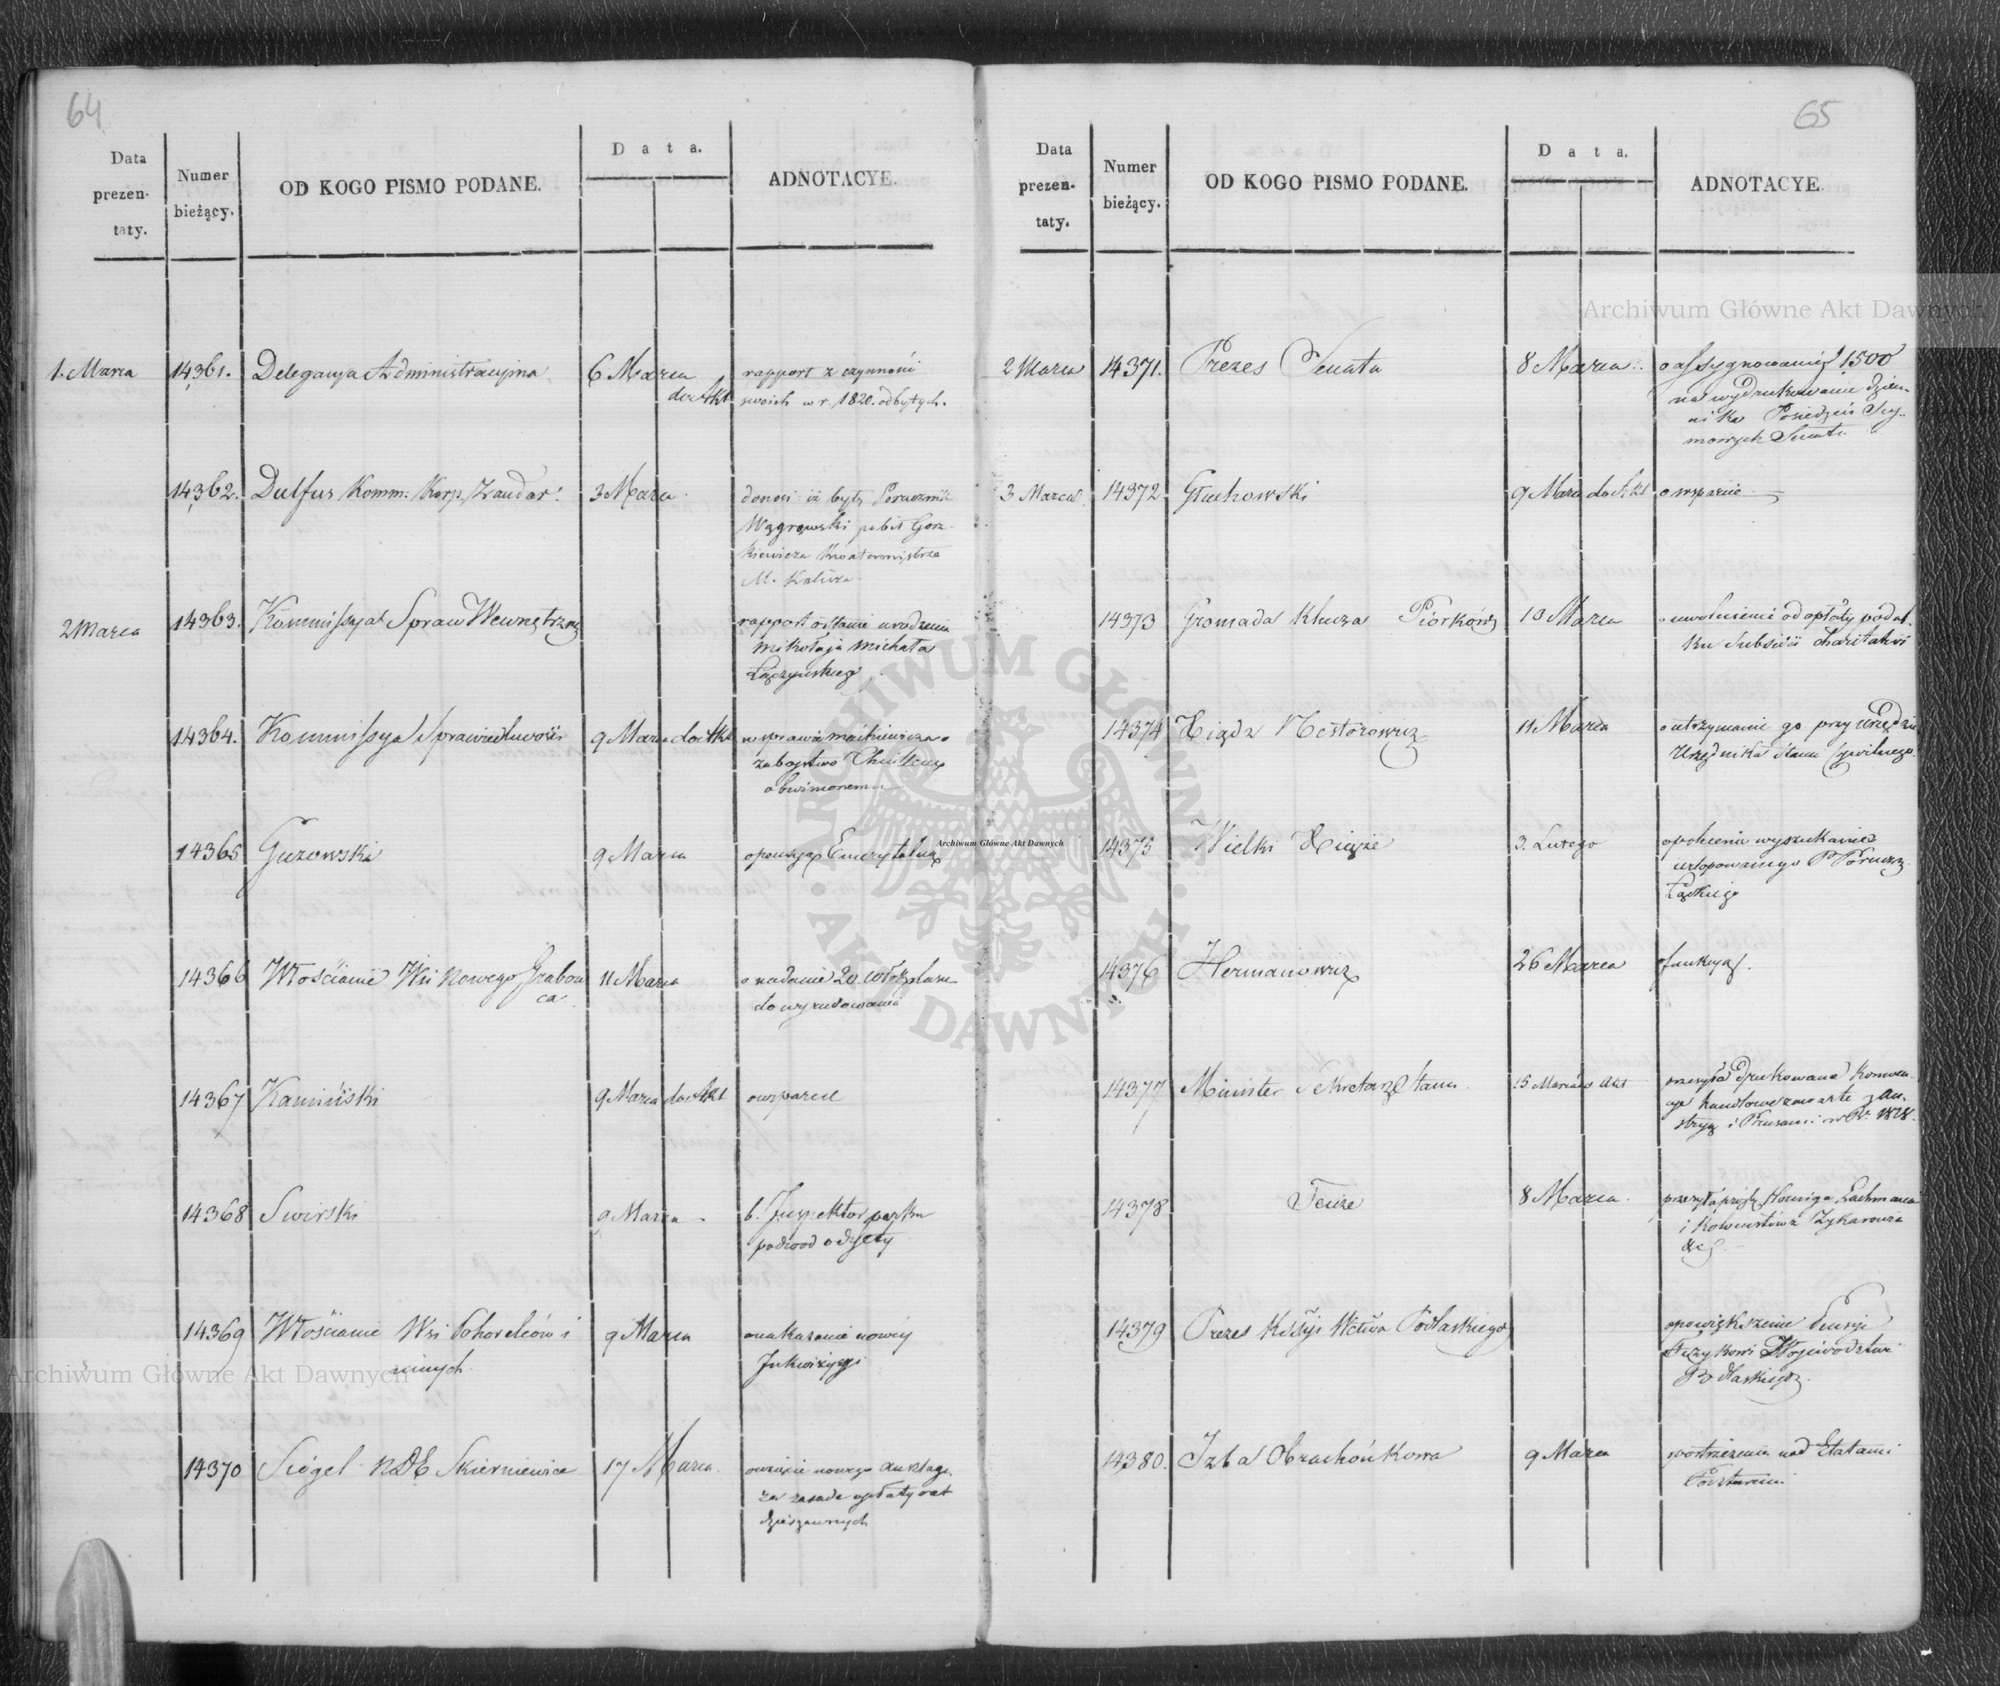 64
Data
prezen-
taty.
Numer
bieżący.
OD KOGO PISMO PODANE.
Data.
ADNOTACYE.
1. Marca
14361.
Delegacya Administracyina
6 Marca
do Akt
rapport z czynności
swoich w r. 1820. odbytych.
14362.
Dulfus Komm: Korp. Żandar:
3 Marca
donosi iż były Porucznik
Wągrowski pobił Gorz-
kiewicza Kwatermistrza
M. Kalisza.
2 Marca
14363.
Kommissya Spraw Wewnętrznych
rapport o stanie urodzenia
Mikołaja Michała
Łączyńskiego
14364.
Kommissya Sprawiedliwości
9 Marca do Akt
w sprawie
zaboystwo
obwinionemu
14365
Guzowski
9 Marca
o pensyą Emerytalną
14366
Włościanie Wsi Nowego Grabow
ca
11 Marca
o nadanie 20 włók lasu
do wyrudowania
14367
Kamiński
9 Marca do Akt
o wsparcie
14368
Swirski
9 Marca
b. Inspektor parku
podwod o dyety
14369
Włościanie Wsi Pohorelców i
innych
9 Marca
o nakazanie nowéy
Inkwizycyi
14370
Siegel NDE Skierniewice
17 Marca
o wzięcie nowego anszlagu
za zasadę opłaty rat
dzierżawnych
65
Data
prezen-
taty.
Numer
bieżący.
OD KOGO PISMO PODANE.
Data.
ADNOTACYE.
2 Marca
14371.
Prezes Senatu
8 Marca
o assygnowanie 1500
na wydrukowanie dzien-
nika Posiedzeń Sey-
mowych Senatu
3 Marca
14372
Głuchowski
9 Marca do Akt
o wsparcie
14373
Gromada Klucza Piorków
10 Marca
o uwolnienie od opłaty podat-
ku Subsidii Charitativi
14374
Xiądz Nestorowicz
11 Marca
o utrzymanie go przy Urzędzie
Urzędnika Stanu Cywilnego.
14375
Wielki Xiąże
3. Lutego
o polecenie wyszukania
urlopowanego P Porucz.
Łąckiego
14376
Hermanowicz
26 Marca
o funkcyą.
14377
Minister Sekretarz Stanu
15 Marca do Akt
przesyła drukowane Konwen-
cye handlowe zawarte z Au-
stryą i Prusami w R. 1818.
14378
Tenże
8 Marca
przesyła proźby Lachmana
i Kolonistów z
&c.
14379
Prezes Kssyi Wctwa Podlaskiego
o powiększenie Pensyi
Fizykowi Wojewodztwa
Podlaskiego.
14380.
Izba Obrachonkowa
9 Marca
postrzeżenia nad Etatami
Pocztowemi
Archiwum Główne Akt Dawnych
Archiwum Główne Akt Dawnych
Archiwum Główne Akt Dawnych
ARCHIWUM GŁÓWNE AKT DAWNYCH